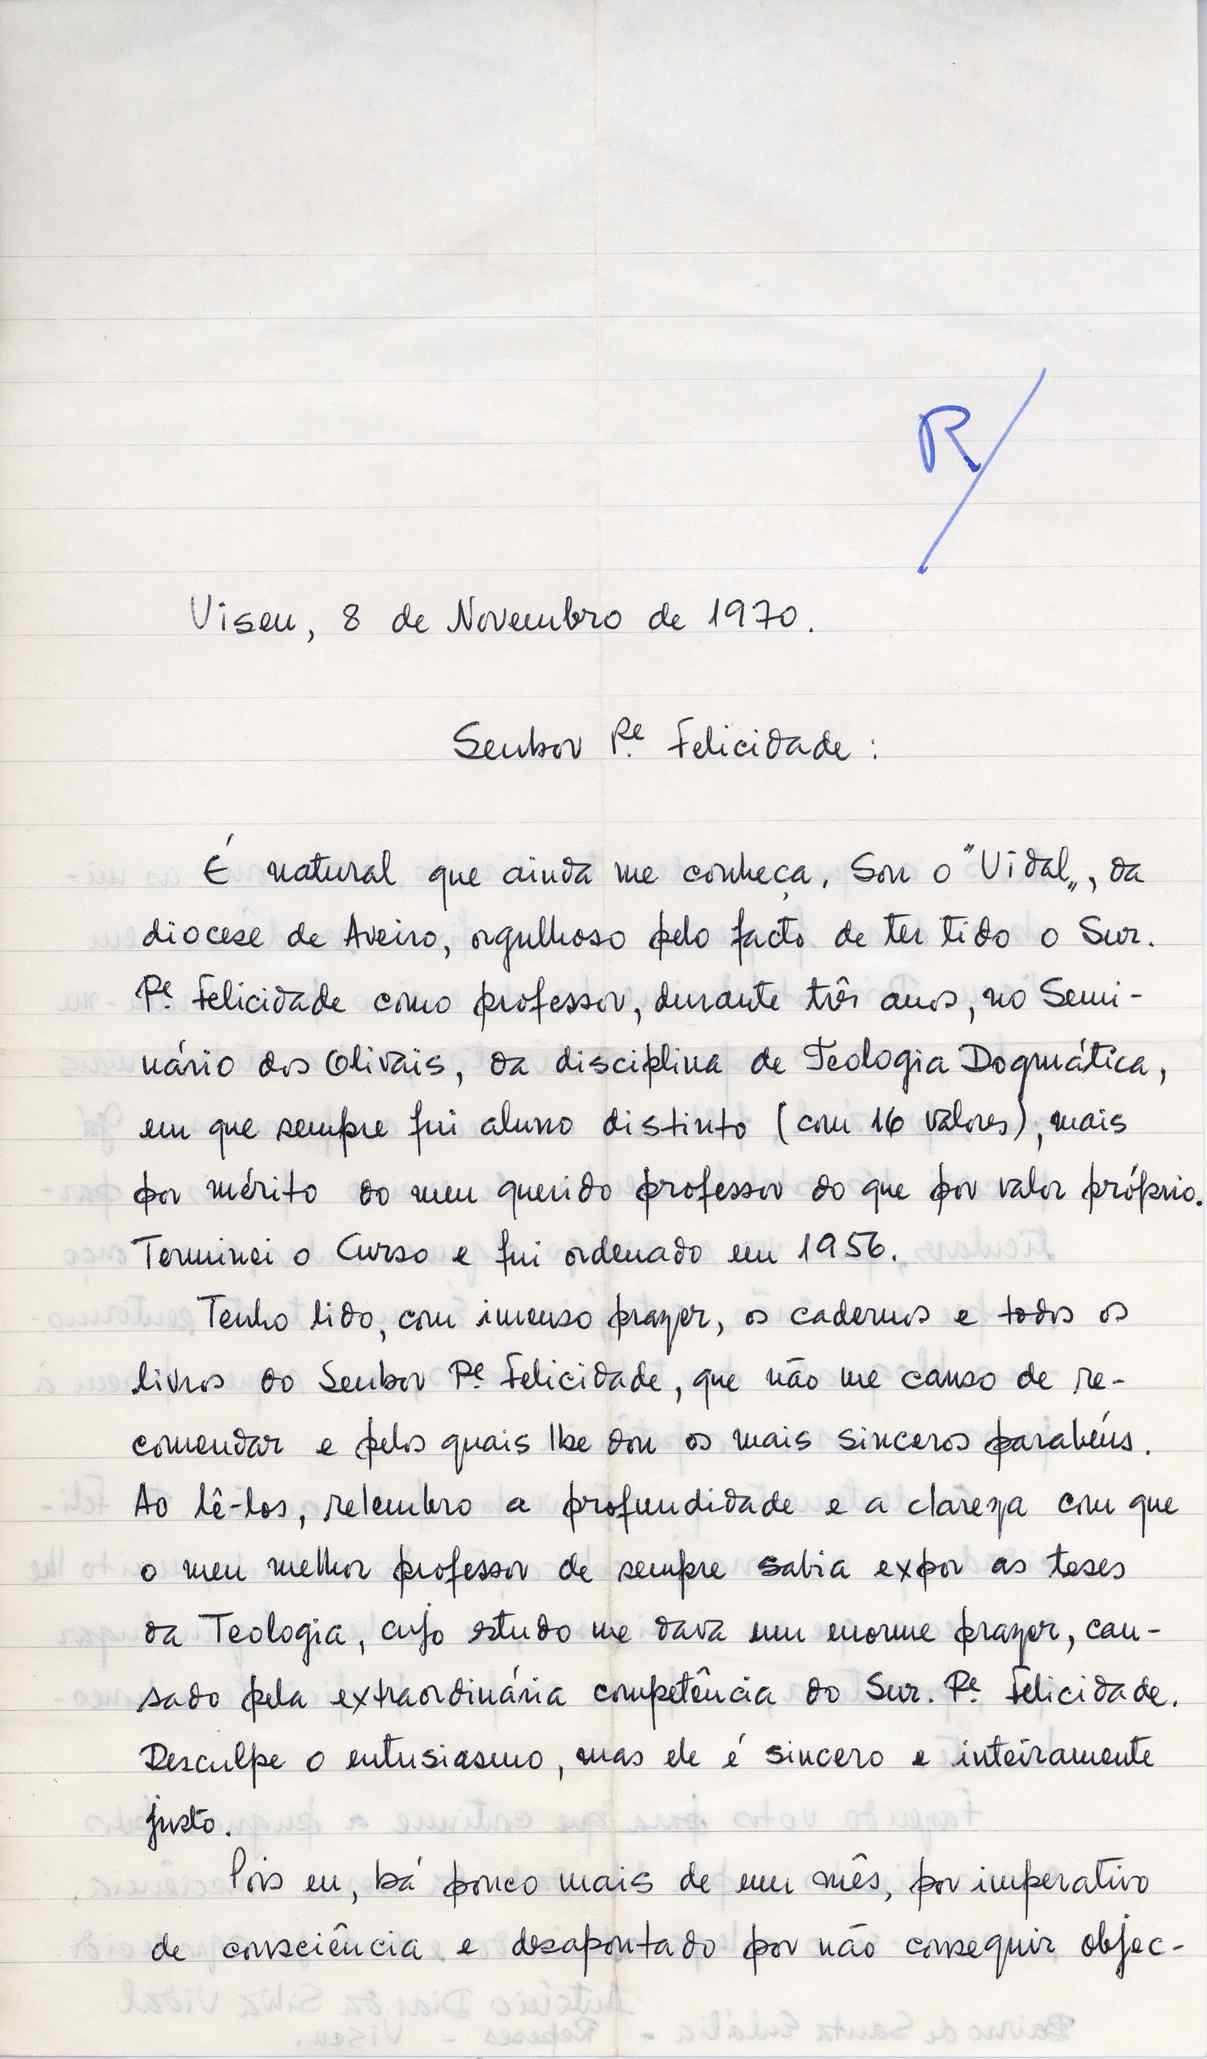 R/
Viseu, 8 de Novembro de 1970.
Senhor Pe. Felicidade:
É natural que ainda me conheça. Sou o "Vidal", da
diocese de Aveiro, orgulhoso pelo facto de ter tido o Snr.
Pe. Felicidade como professor, durante três anos, no Semi-
nário dos Olivais, da disciplina de Teologia Dogmática,
em que sempre fui aluno distinto (com 16 valores), mais
por mérito do meu querido professor do que por valor próprio.
Terminei o Curso e fui ordenado em 1956.
Tenho lido, com imenso prazer, os cadernos e todos os
livros do Senhor Pe. Felicidade, que não me canso de re-
comendar e pelos quais lhe dou os mais sinceros parabéns.
Ao lê-los, relembro a profundidade e a clareza com que
o meu melhor professor de sempre sabia expor as teses
da Teologia, cujo estudo me dava um enorme prazer, cau-
sado pela extraordinária competência do Snr. Pe. Felicidade.
Desculpe o entusiasmo, mas ele é sincero e inteiramente
justo.
Pois eu, há pouco mais de um mês, por imperativo
de consciência e desapontado por não conseguir objec-
António Dias da Silva Vidal
Bairro de Santa Eulália - Repeses - Viseu.